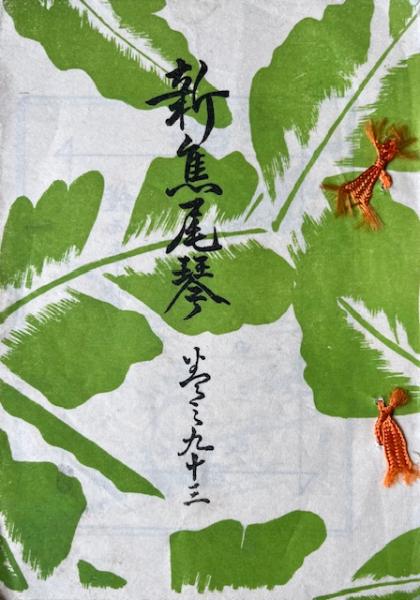 新焦尾琴
巻之九十三